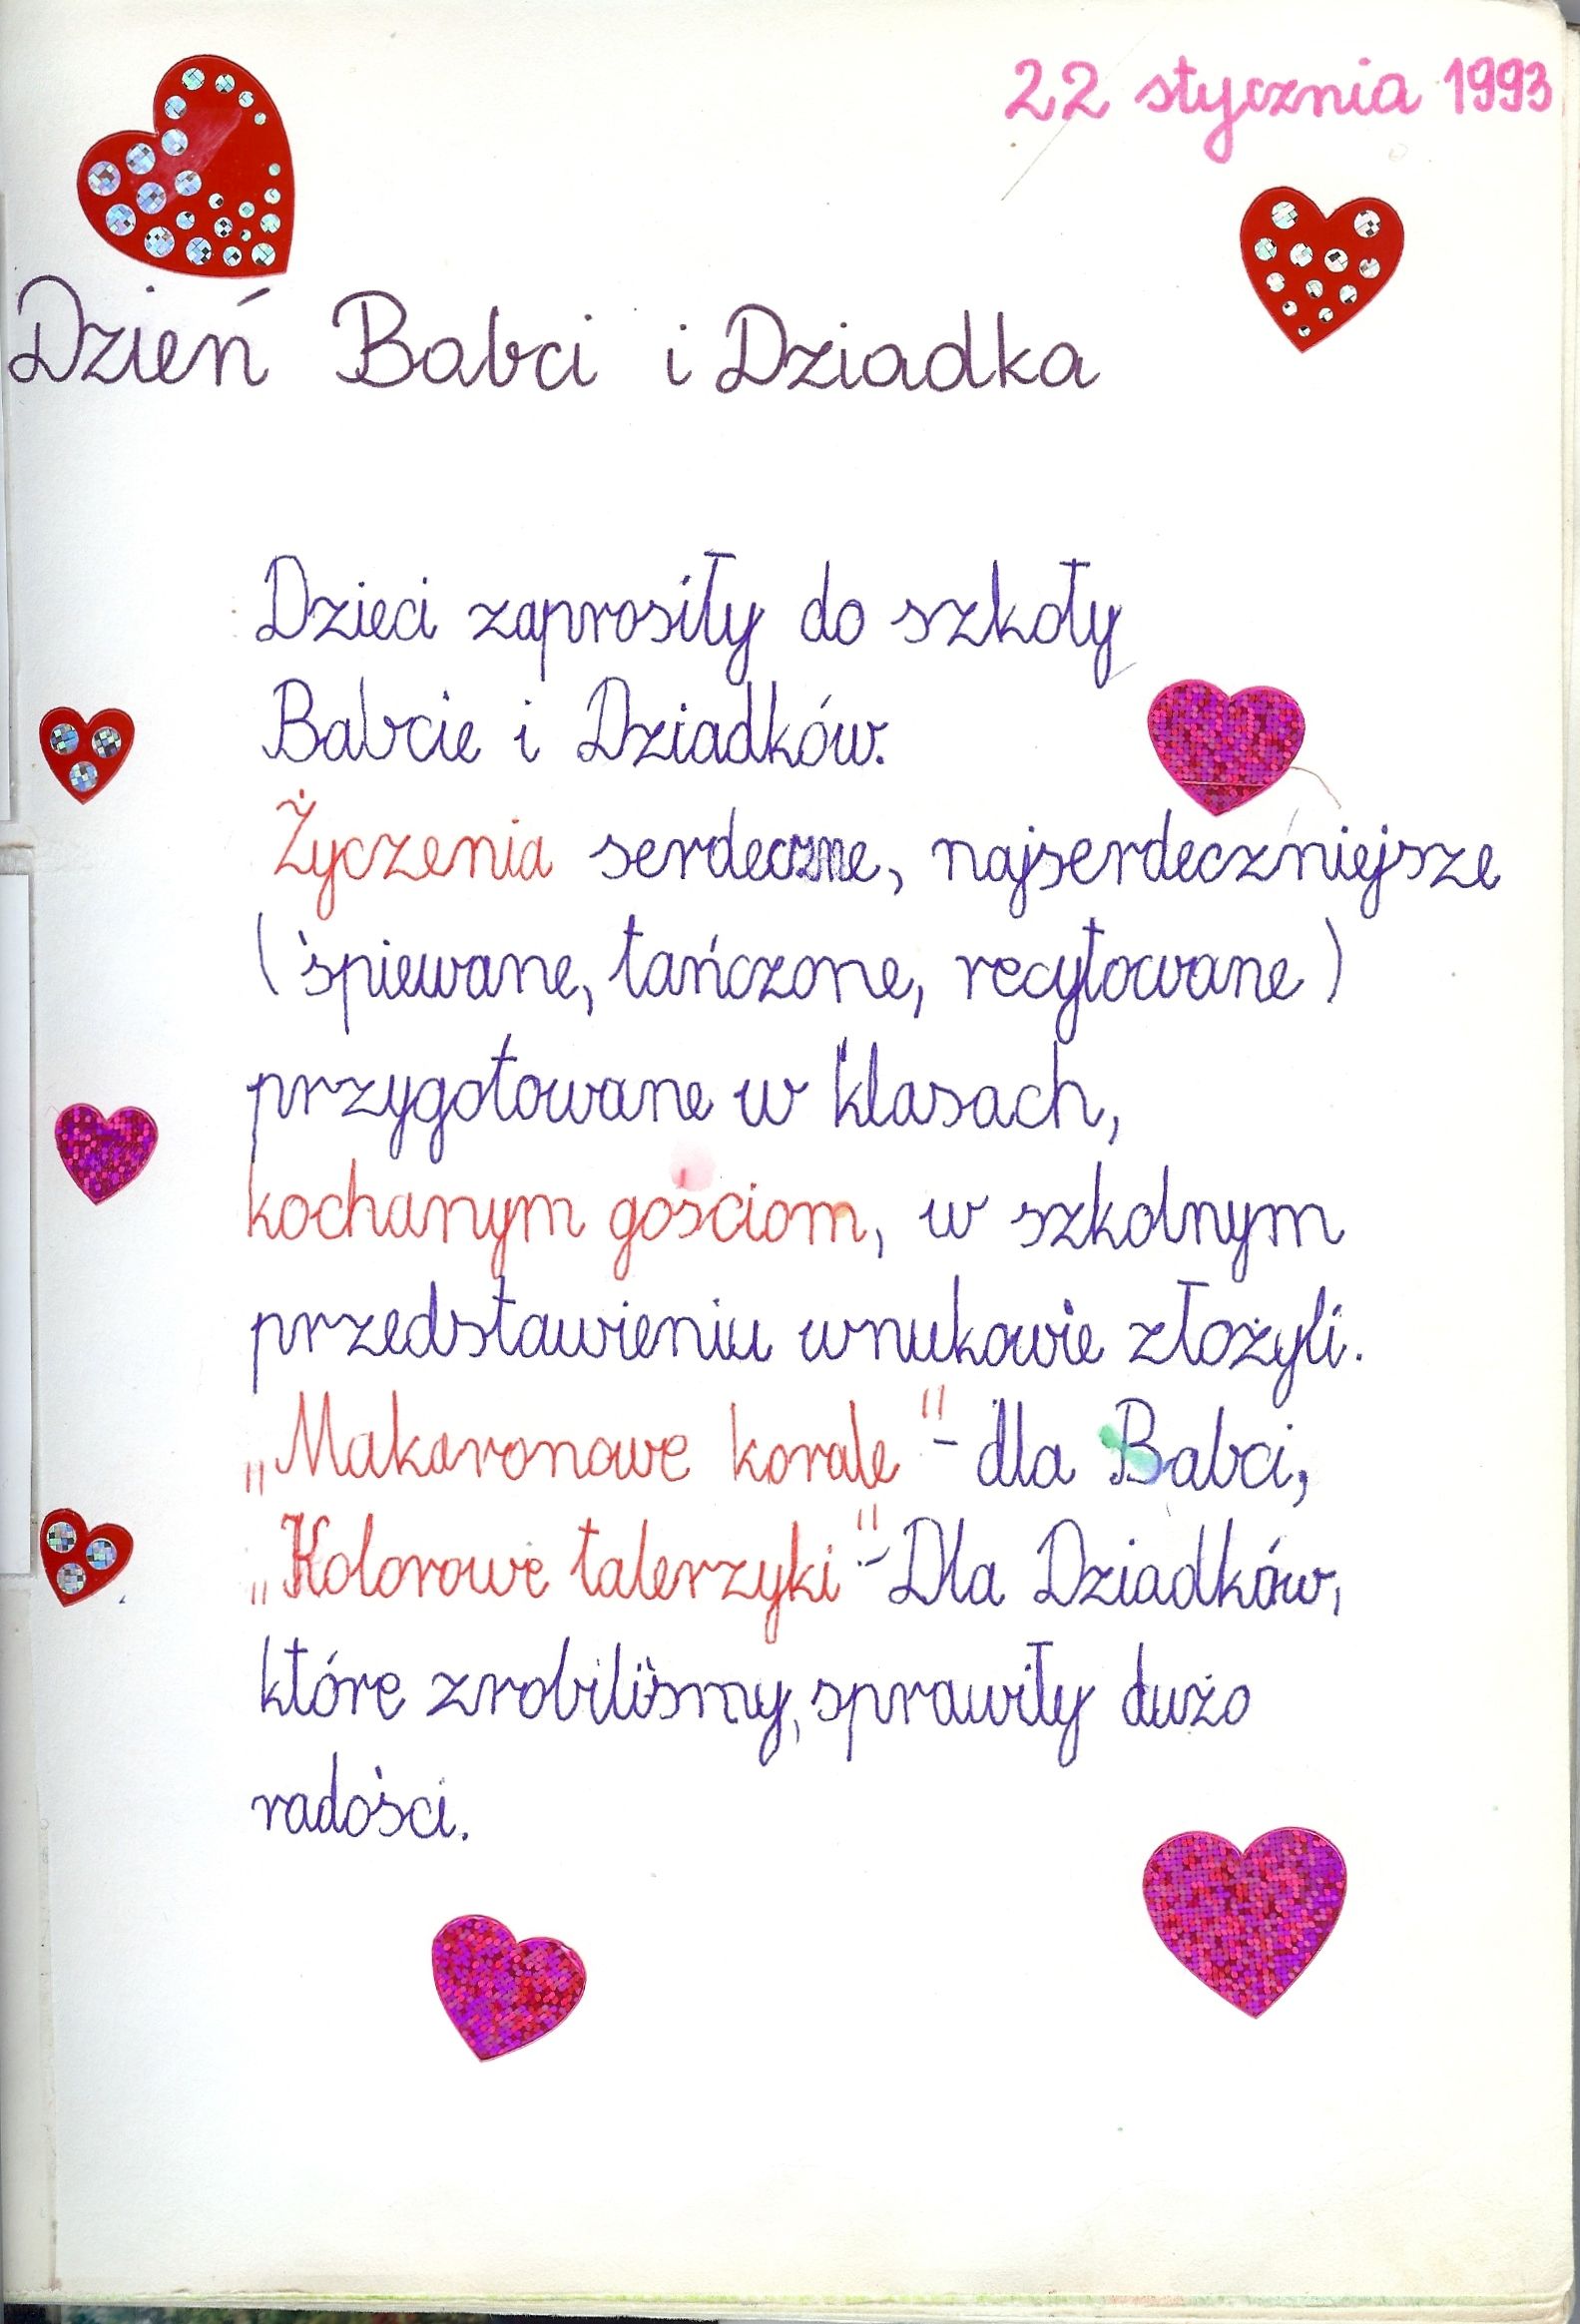 22 stycznia 1993
Dzień Babci i Dziadka
Dzieci zaprosiły do szkoły
Babcie i Dziadków.
Życzenia serdeczne, najserdeczniejsze
(śpiewane, tańczone, recytowane)
przygotowane w klasach,
kochanym gościom, w szkolnym
przedstawieniu wnukowie złożyli.
„Makaronowe korale" - dla Babci,
„Kolorowe talerzyki" - Dla Dziadków,
które zrobiliśmy, sprawiły dużo
radości.